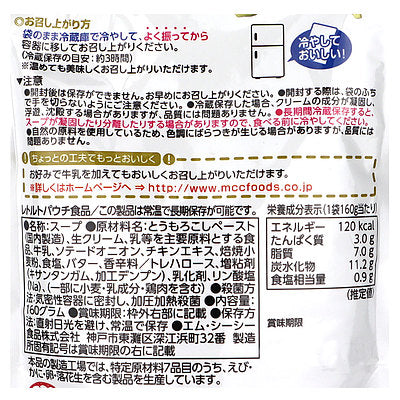 ◎お召し上がり方
袋のまま冷蔵庫で冷やして、よく振ってから
容器に移してお召し上がりください。
(冷蔵保存の目安:約3時間)
※温めても美味しくお召し上がりいただけます。
冷やして
おいしい!
▼注意
●開封後は保存ができません。お早めにお召し上がりください。●開封する際は、袋のふち
で手を切らないようにご注意ください。●冷蔵保存した場合、クリームの成分が凝固し、
浮遊、沈殿する場合がありますが、品質には問題ありません。●長期間冷蔵保存すると、
スープが凝固したり分離したりする場合がありますので、食べる前によく振ってください。
●自然の原料を使用しているため、色調にばらつきが生じる場合がありますが、品質には
問題ありません。
ちょっとの工夫でもっとおいしく
お好みで牛乳を加えてもおいしくお召し上がりいただけます。
※詳しくはホームページへ➔http://www.mccfoods.co.jp/
レトルトパウチ食品/この製品は常温で長期保存が可能です。
●名称:スープ ●原材料名:とうもろこしペースト
(国内製造)、生クリーム、乳等を主要原料とする食
品、牛乳、ソテードオニオン、チキンエキス、焙焼小
麦粉、食塩、バター、香辛料/トレハロース、増粘剤
(キサンタンガム、加工デンプン)、乳化剤、リン酸塩
(Na)、(一部に小麦・乳成分・鶏肉を含む) ●殺菌方
法:気密性容器に密封し、加圧加熱殺菌 ●内容量:
160グラム ●賞味期限:枠外右部に記載 ●保存方
法:直射日光を避け、常温で保存 ●エム・シーシー
食品株式会社 神戸市東灘区深江浜町32番 製造
所固有記号は賞味期限の右に記載
本品の製造工場では、特定原材料7品目のうち、えび・
かに・卵・落花生を含む製品を生産しています。
栄養成分表示(1袋160g当たり)
エネルギー 120 kcal
たんぱく質 3.0 g
脂質 7.0 g
炭水化物 11.2 g
食塩相当量 0.9 g
(推定値)
賞味期限